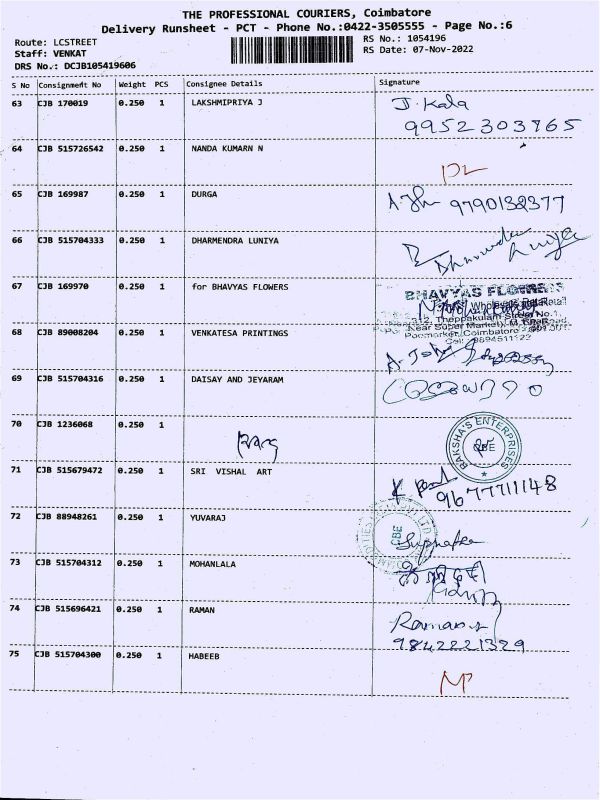 THE PROFESSIONAL COURIERS, Coimbatore
Delivery Runsheet - PCT - Phone No.:0422-3505555 - Page No.:6
Route: LCSTREET
Staff: VENKAT
DRS No.: DCJB105419606
RS No.: 1054196
RS Date: 07-Nov-2022
S No Consignment No Weight PCS Consignee Details Signature
63 CJB 170019 0.250 1 LAKSHMIPRIYA J J. Kala
9952303865
64 CJB 515726542 0.250 1 NANDA KUMARN N
DL
65 CJB 169987 0.250 1 DURGA 9790132377
66 CJB 515704333 0.250 1 DHARMENDRA LUNIYA
Dharmendra Luniya
67 CJB 169970 0.250 1 for BHAVYAS FLOWERS BHAVYAS FLOWERS
Theppakulam Street No.1,
Near Super Market
Poomarket, Coimbatore
Cell: 9894511122
68 CJB 89008204 0.250 1 VENKATESA PRINTINGS
69 CJB 515704316 0.250 1 DAISAY AND JEYARAM
70 CJB 1236068 0.250 1 RAKSHA'S ENTERPRISES
CBE
71 CJB 515679472 0.250 1 SRI VISHAL ART
9677711148
72 CJB 88948261 0.250 1 YUVARAJ CBE
73 CJB 515704312 0.250 1 MOHANLALA
74 CJB 515696421 0.250 1 RAMAN Raman
9842221329
75 CJB 515704300 0.250 1 HABEEB